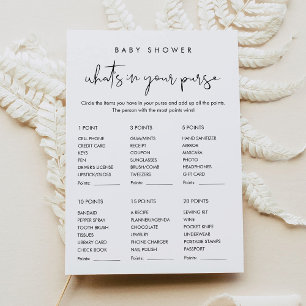 BABY SHOWER
what's in your purse
Circle the items you have in your purse and add up all the points.
The person with the most points wins!
1 POINT
CELL PHONE
CREDIT CARD
KEYS
PEN
DRIVER'S LICENSE
LIPSTICK/GLOSS
Points:
3 POINTS
GUM/MINTS
RECEIPT
COUPON
SUNGLASSES
BRUSH/COMB
TWEEZERS
Points:
5 POINTS
HAND SANITIZER
MIRROR
MASCARA
PHOTO
HEADPHONES
GIFT CARD
Points:
10 POINTS
BANDAID
PEPPER SPRAY
TOOTH BRUSH
TISSUES
LIBRARY CARD
CHECK BOOK
Points:
15 POINTS
A RECIPE
PLANNER/AGENDA
CHOCOLATE
JEWELRY
PHONE CHARGER
NAIL POLISH
Points:
20 POINTS
SEWING KIT
WINE
POCKET KNIFE
UNDERWEAR
POSTAGE STAMPS
PASSPORT
Points: